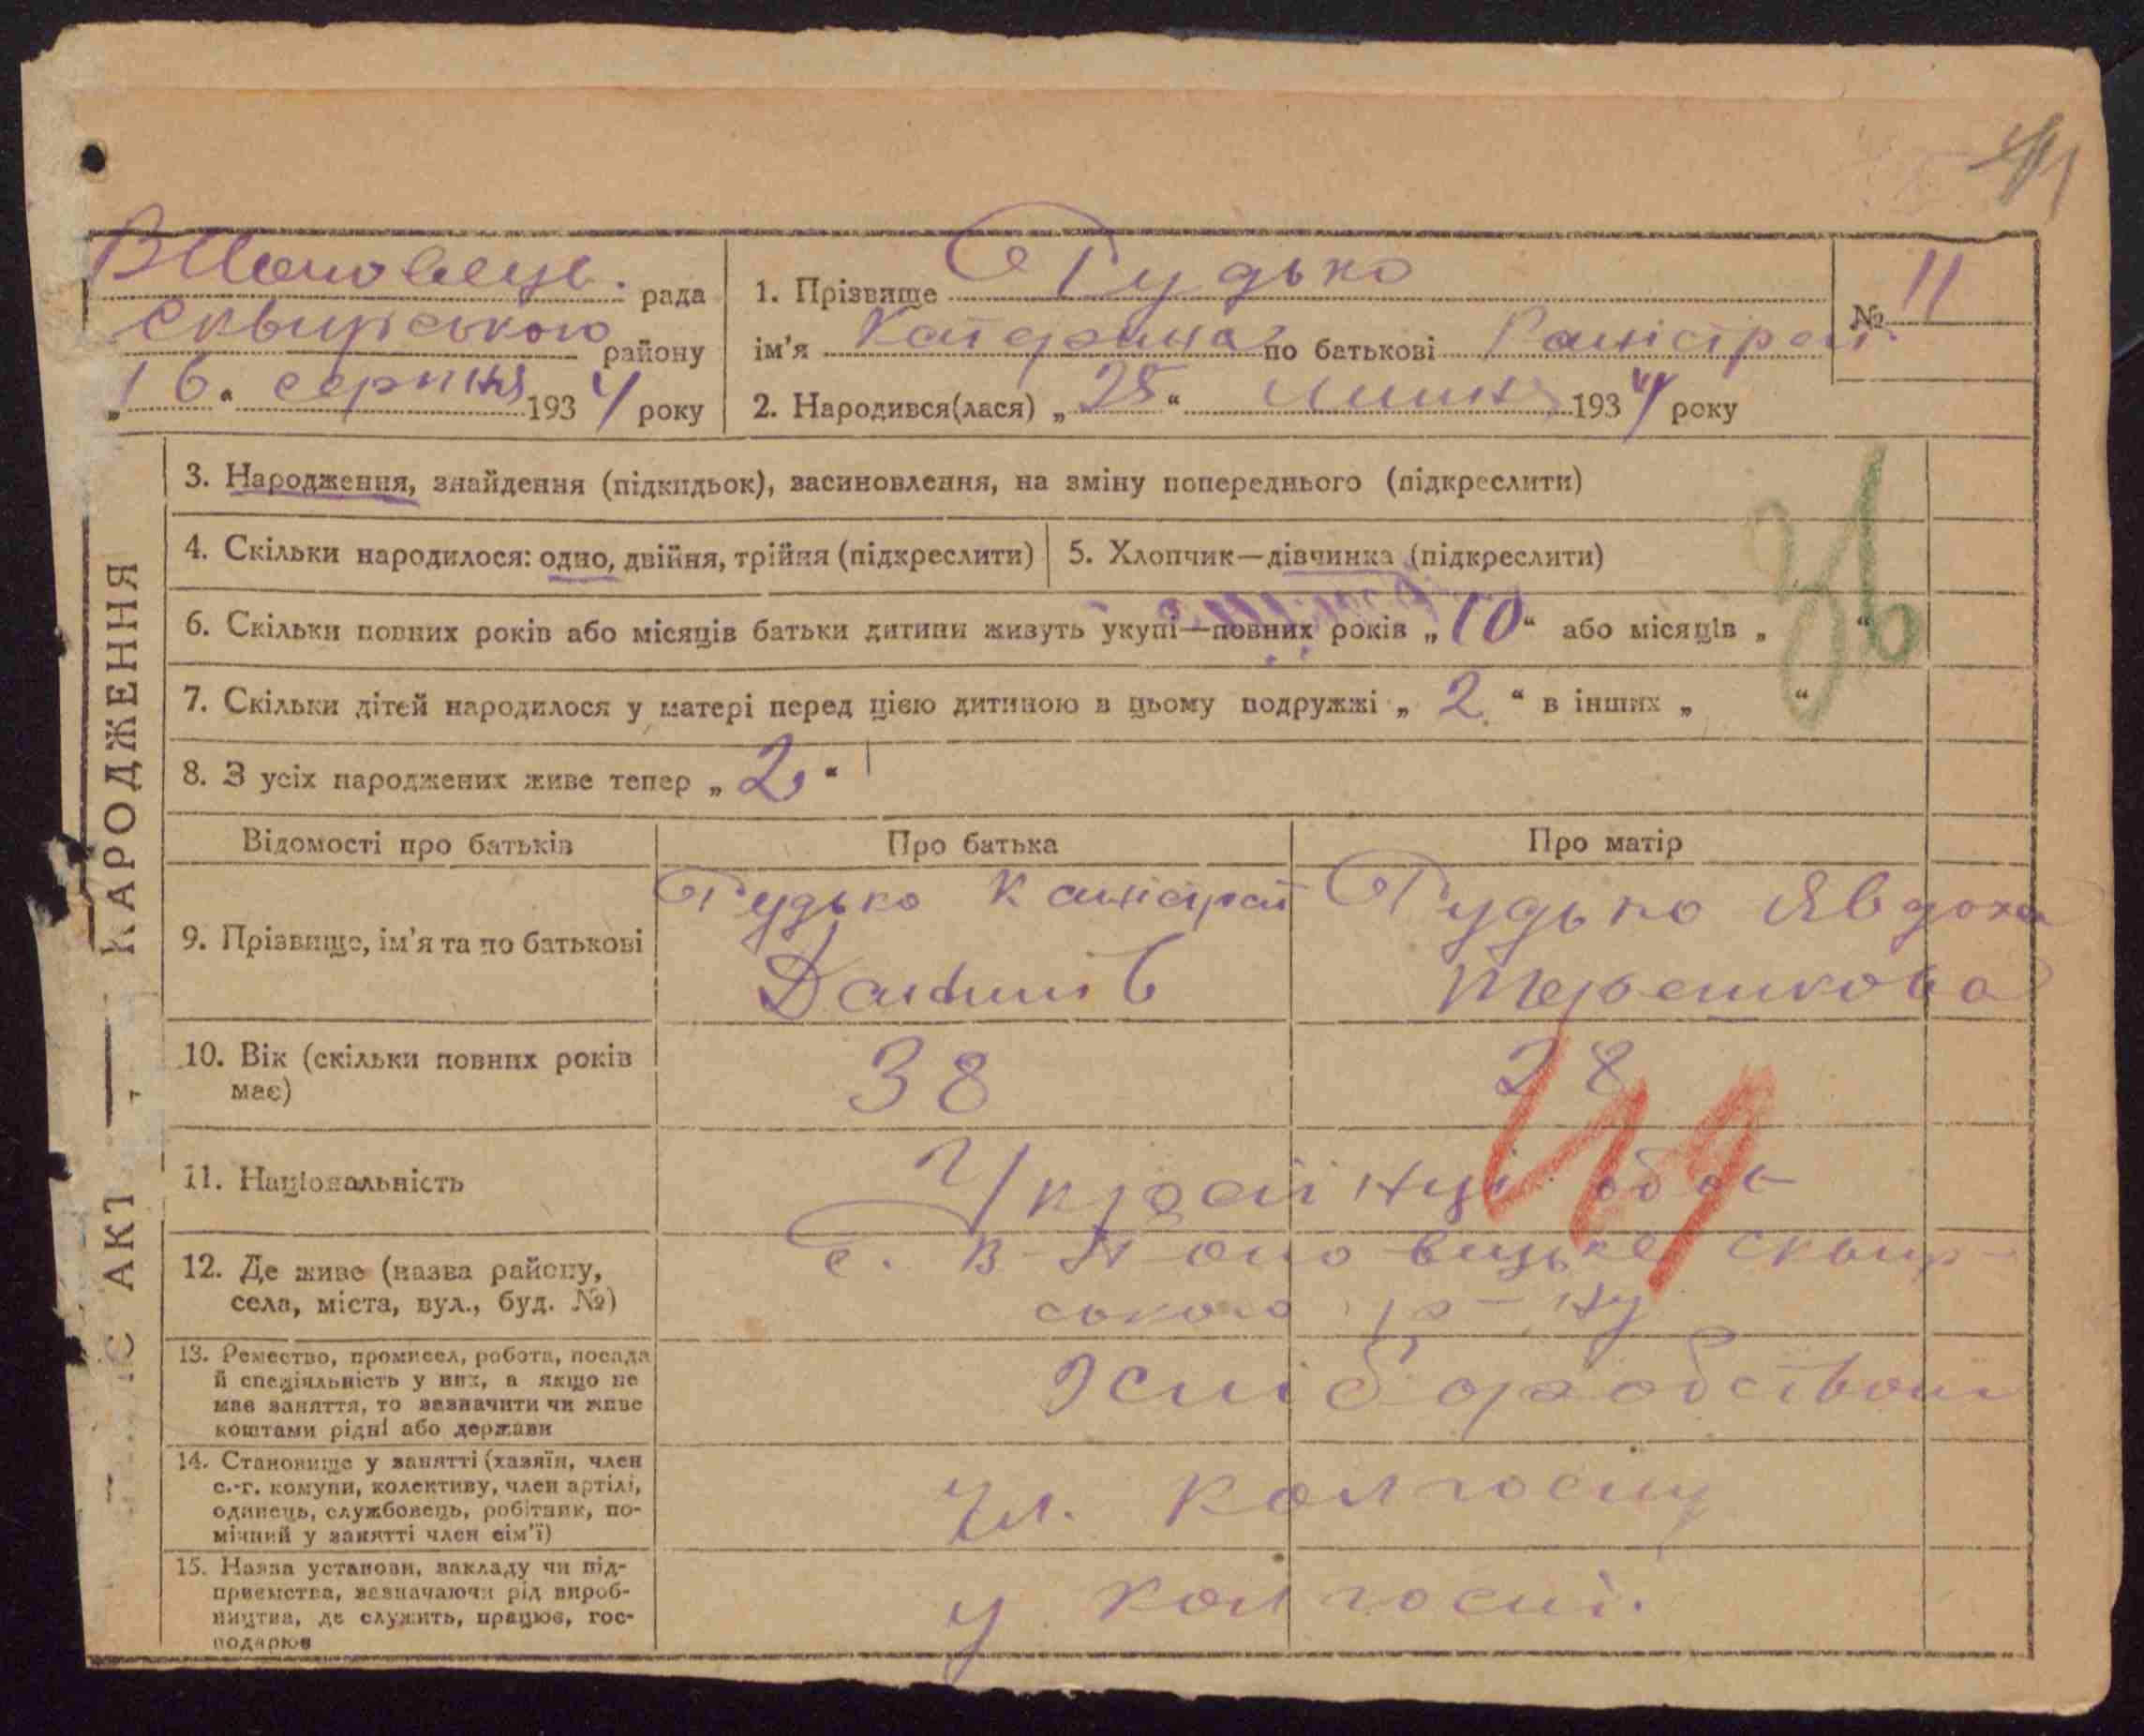 11
рада
Сквирського району
„16“ серпня 1934 року
1. Прізвище Гудько
ім'я Катерина по батькові
№ 11
2. Народився(лася) „25“ липня 1934 року
АКТ — НАРОДЖЕННЯ
3. Народження, знайдення (підкидьок), засиновлення, на зміну попереднього (підкреслити)
4. Скільки народилося: одно, двійня, трійня (підкреслити)
5. Хлопчик—дівчинка (підкреслити)
36
6. Скільки повних років або місяців батьки дитини живуть укупі—повних років „10“ або місяців „ “
7. Скільки дітей народилося у матері перед цією дитиною в цьому подружжі „2“ в інших „ “
8. З усіх народжених живе тепер „2“
Відомості про батьків
Про батька
Про матір
9. Прізвище, ім'я та по батькові
Гудько
Гудько Явдоха
Терешкова
10. Вік (скільки повних років
має)
38
28
49
11. Національність
Українці оба
12. Де живе (назва району,
села, міста, вул., буд. №)
с. В- Сквир-
ського р-ну
13. Ремество, промисел, робота, посада
й спеціяльність у них, а якщо не
має заняття, то зазначити чи живе
коштами рідні або держави
Хліборобством
14. Становище у занятті (хазяїн, член
с.-г. комуни, колективу, член артілі,
одинець, службовець, робітник, по-
мічний у занятті член сім'ї)
чл. колгоспу
15. Назва установи, закладу чи під-
приємства, зазначаючи рід вироб-
ництва, де служить, працює, гос-
подарює
у колгоспі.